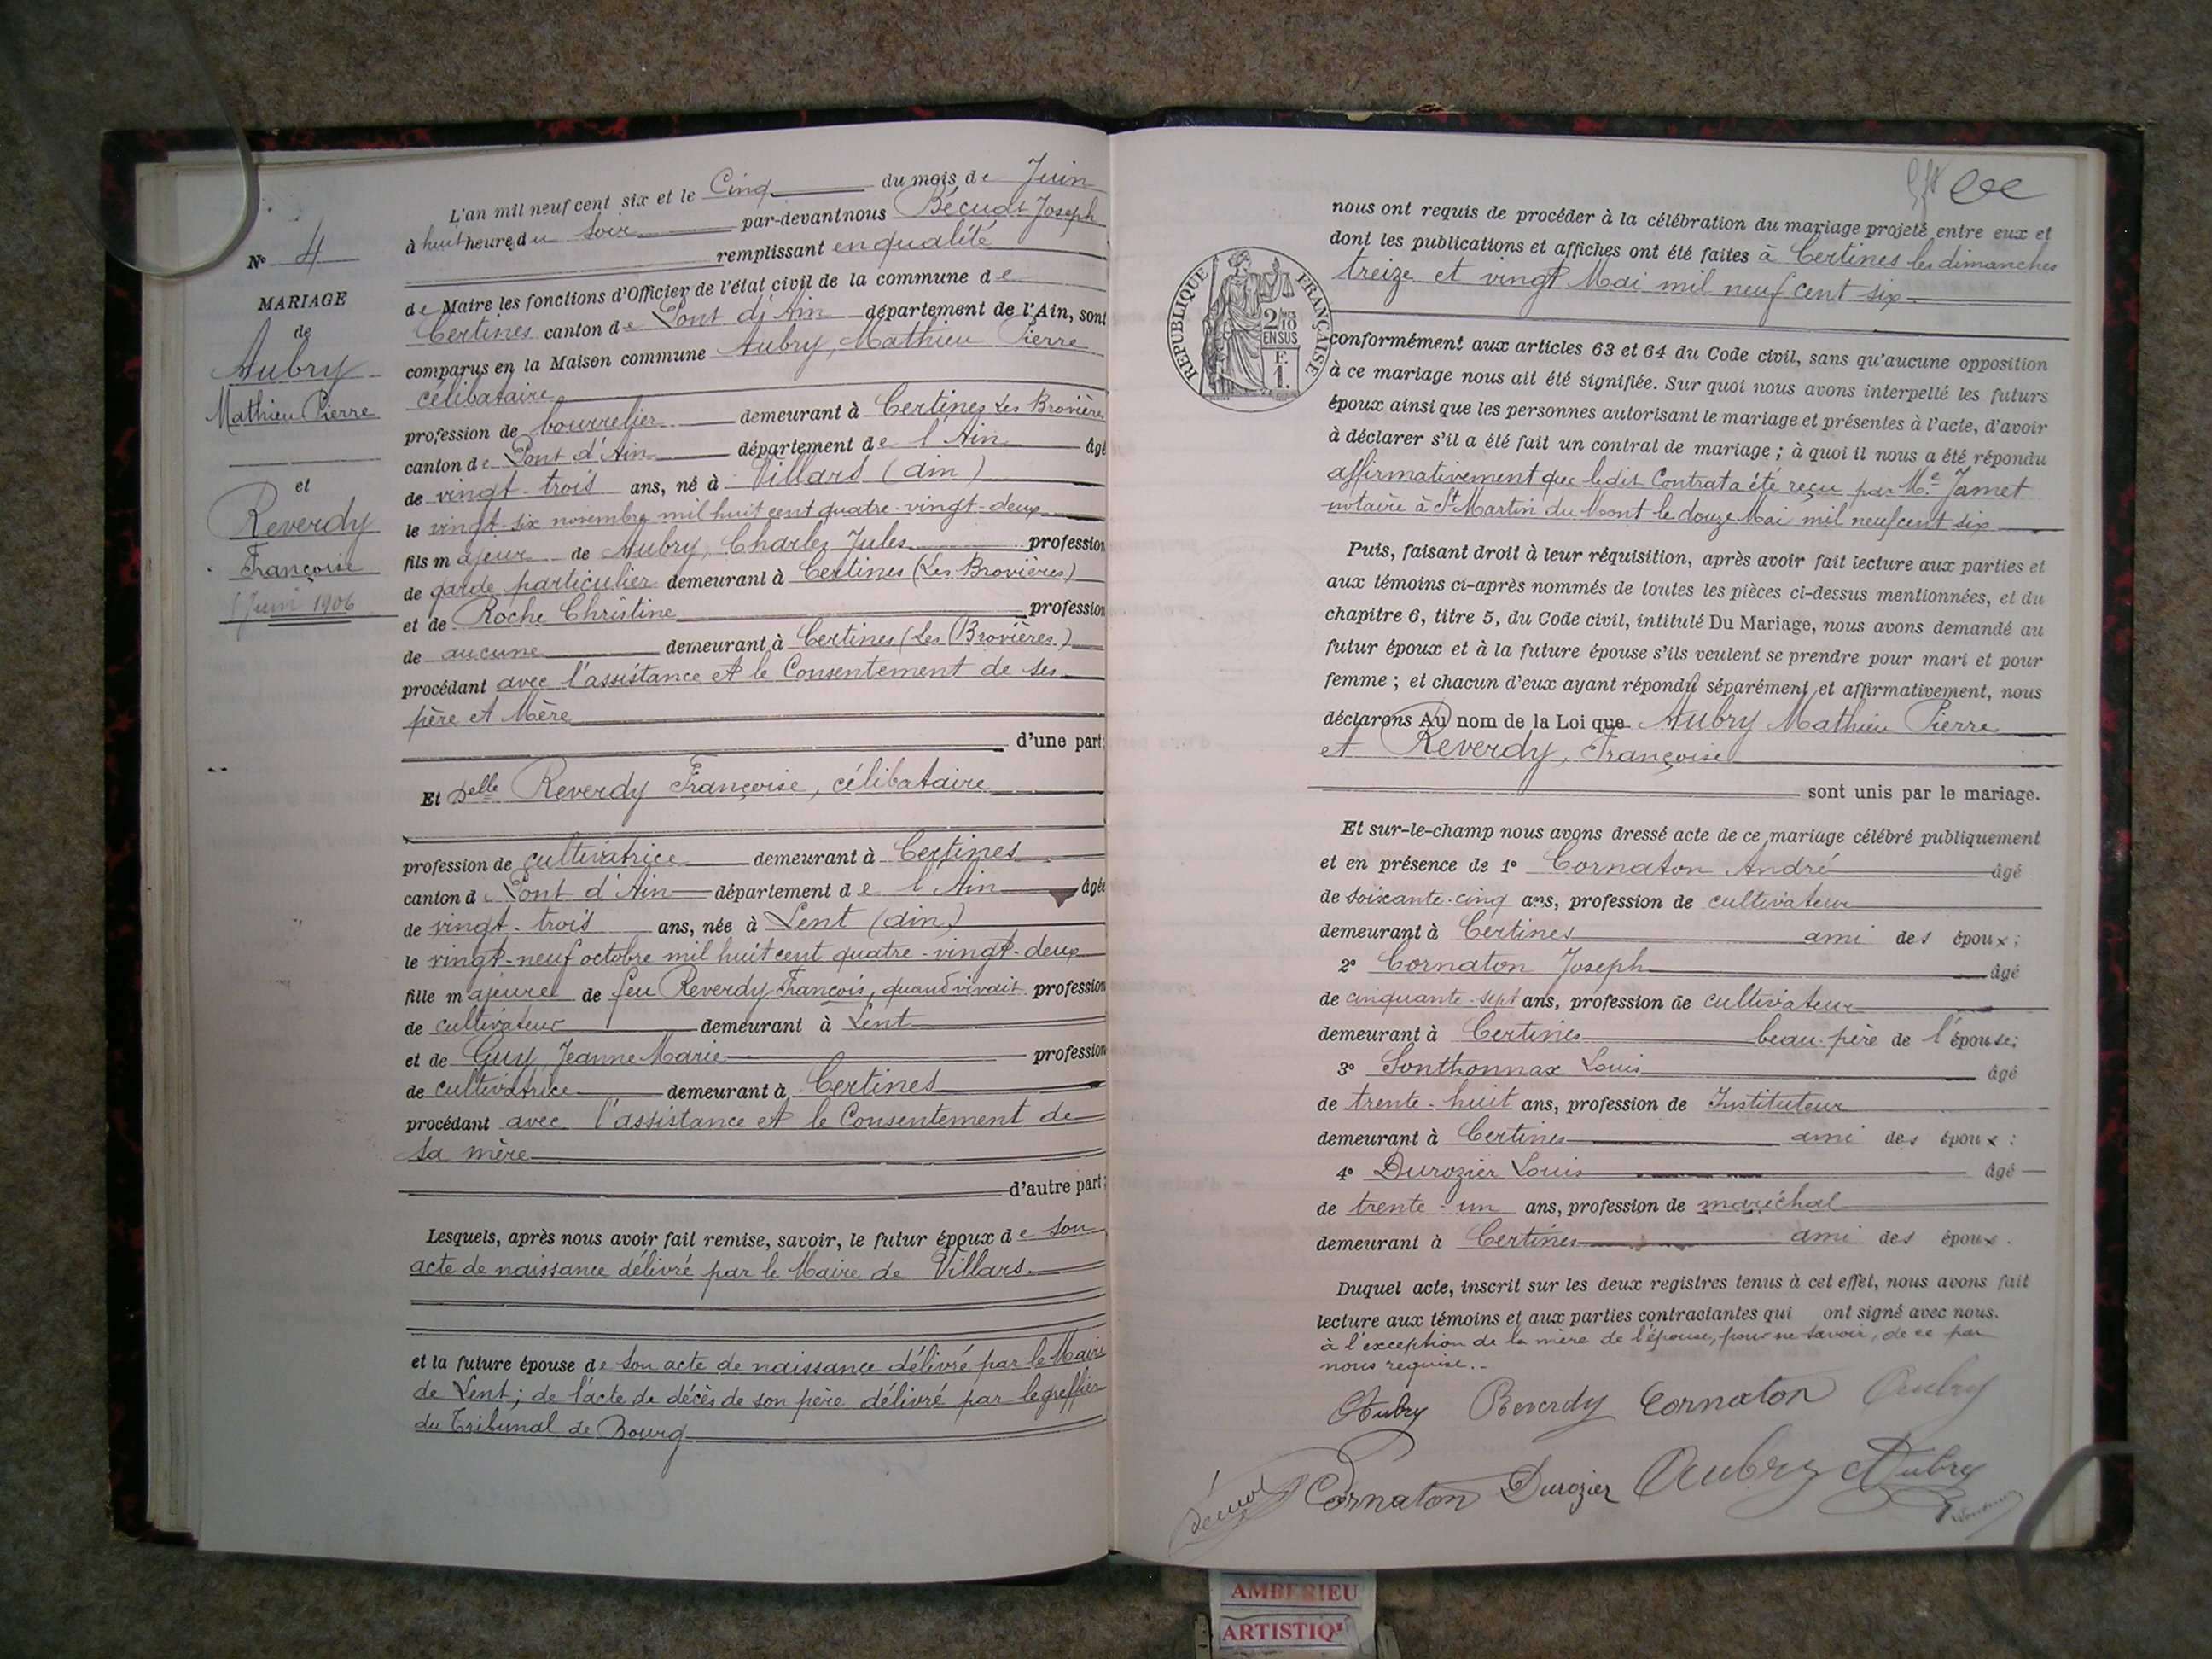 N° 4
MARIAGE
de
Aubry
Mathieu Pierre
et
Reverdy
Françoise
Juin 1906
L'an mil neuf cent six et le Cinq du mois de Juin
à huit heures du soir par-devant nous Bécuat Joseph
remplissant en qualité
de Maire les fonctions d'Officier de l'état civil de la commune de
Certines canton de Pont d'Ain département de l'Ain, sont
comparus en la Maison commune Aubry, Mathieu Pierre
célibataire
profession de bourrelier demeurant à Certines Les Brovières
canton de Pont d'Ain département de l'Ain âgé
de vingt-trois ans, né à Villars (ain)
le vingt-six novembre mil huit cent quatre-vingt-deux
fils majeur de Aubry, Charles Jules profession
de garde particulier demeurant à Certines (Les Brovières)
et de Roche Christine profession
de aucune demeurant à Certines (Les Brovières)
procédant avec l'assistance et le Consentement de ses
père et Mère
d'une part;
Et Delle Reverdy Françoise, célibataire
profession de cultivatrice demeurant à Certines
canton de Pont d'Ain département de l'Ain âgée
de vingt-trois ans, née à Lent (ain)
le vingt-neuf octobre mil huit cent quatre-vingt-deux
fille majeure de feu Reverdy François, quand vivait profession
de cultivateur demeurant à Lent
et de Guy, Jeanne Marie profession
de cultivatrice demeurant à Certines
procédant avec l'assistance et le Consentement de
sa mère
d'autre part;
Lesquels, après nous avoir fait remise, savoir, le futur époux de son
acte de naissance délivré par le Maire de Villars.
et la future épouse de son acte de naissance délivré par le Maire
de Lent; de l'acte de décès de son père délivré par le greffier
du Tribunal de Bourg
RÉPUBLIQUE FRANÇAISE
2/10 EN SUS
F. 1.
nous ont requis de procéder à la célébration du mariage projeté entre eux et
dont les publications et affiches ont été faites à Certines les dimanches
treize et vingt Mai mil neuf cent six
conformément aux articles 63 et 64 du Code civil, sans qu'aucune opposition
à ce mariage nous ait été signifiée. Sur quoi nous avons interpellé les futurs
époux ainsi que les personnes autorisant le mariage et présentes à l'acte, d'avoir
à déclarer s'il a été fait un contrat de mariage ; à quoi il nous a été répondu
affirmativement que ledit Contrat a été reçu par Me Jamet
notaire à St Martin du Mont le douze Mai mil neuf cent six
Puis, faisant droit à leur réquisition, après avoir fait lecture aux parties et
aux témoins ci-après nommés de toutes les pièces ci-dessus mentionnées, et du
chapitre 6, titre 5, du Code civil, intitulé Du Mariage, nous avons demandé au
futur époux et à la future épouse s'ils veulent se prendre pour mari et pour
femme ; et chacun d'eux ayant répondu séparément et affirmativement, nous
déclarons Au nom de la Loi que Aubry Mathieu Pierre
et Reverdy, Françoise
sont unis par le mariage.
Et sur-le-champ nous avons dressé acte de ce mariage célébré publiquement
et en présence de 1° Cornaton André âgé
de soixante-cinq ans, profession de cultivateur
demeurant à Certines ami des époux;
2° Cornaton Joseph âgé
de cinquante-sept ans, profession de cultivateur
demeurant à Certines beau-père de l'épouse;
3° Sonthonnax Louis âgé
de trente-huit ans, profession de Instituteur
demeurant à Certines ami des époux :
4° Durozier Louis âgé
de trente-un ans, profession de maréchal
demeurant à Certines ami des époux.
Duquel acte, inscrit sur les deux registres tenus à cet effet, nous avons fait
lecture aux témoins et aux parties contractantes qui ont signé avec nous.
à l'exception de la mère de l'épouse, pour ne savoir, de ce par
nous requise.
Aubry Reverdy Cornaton Aubry
Cornaton Durozier Aubry Aubry
AMBERIEU
ARTISTIQ